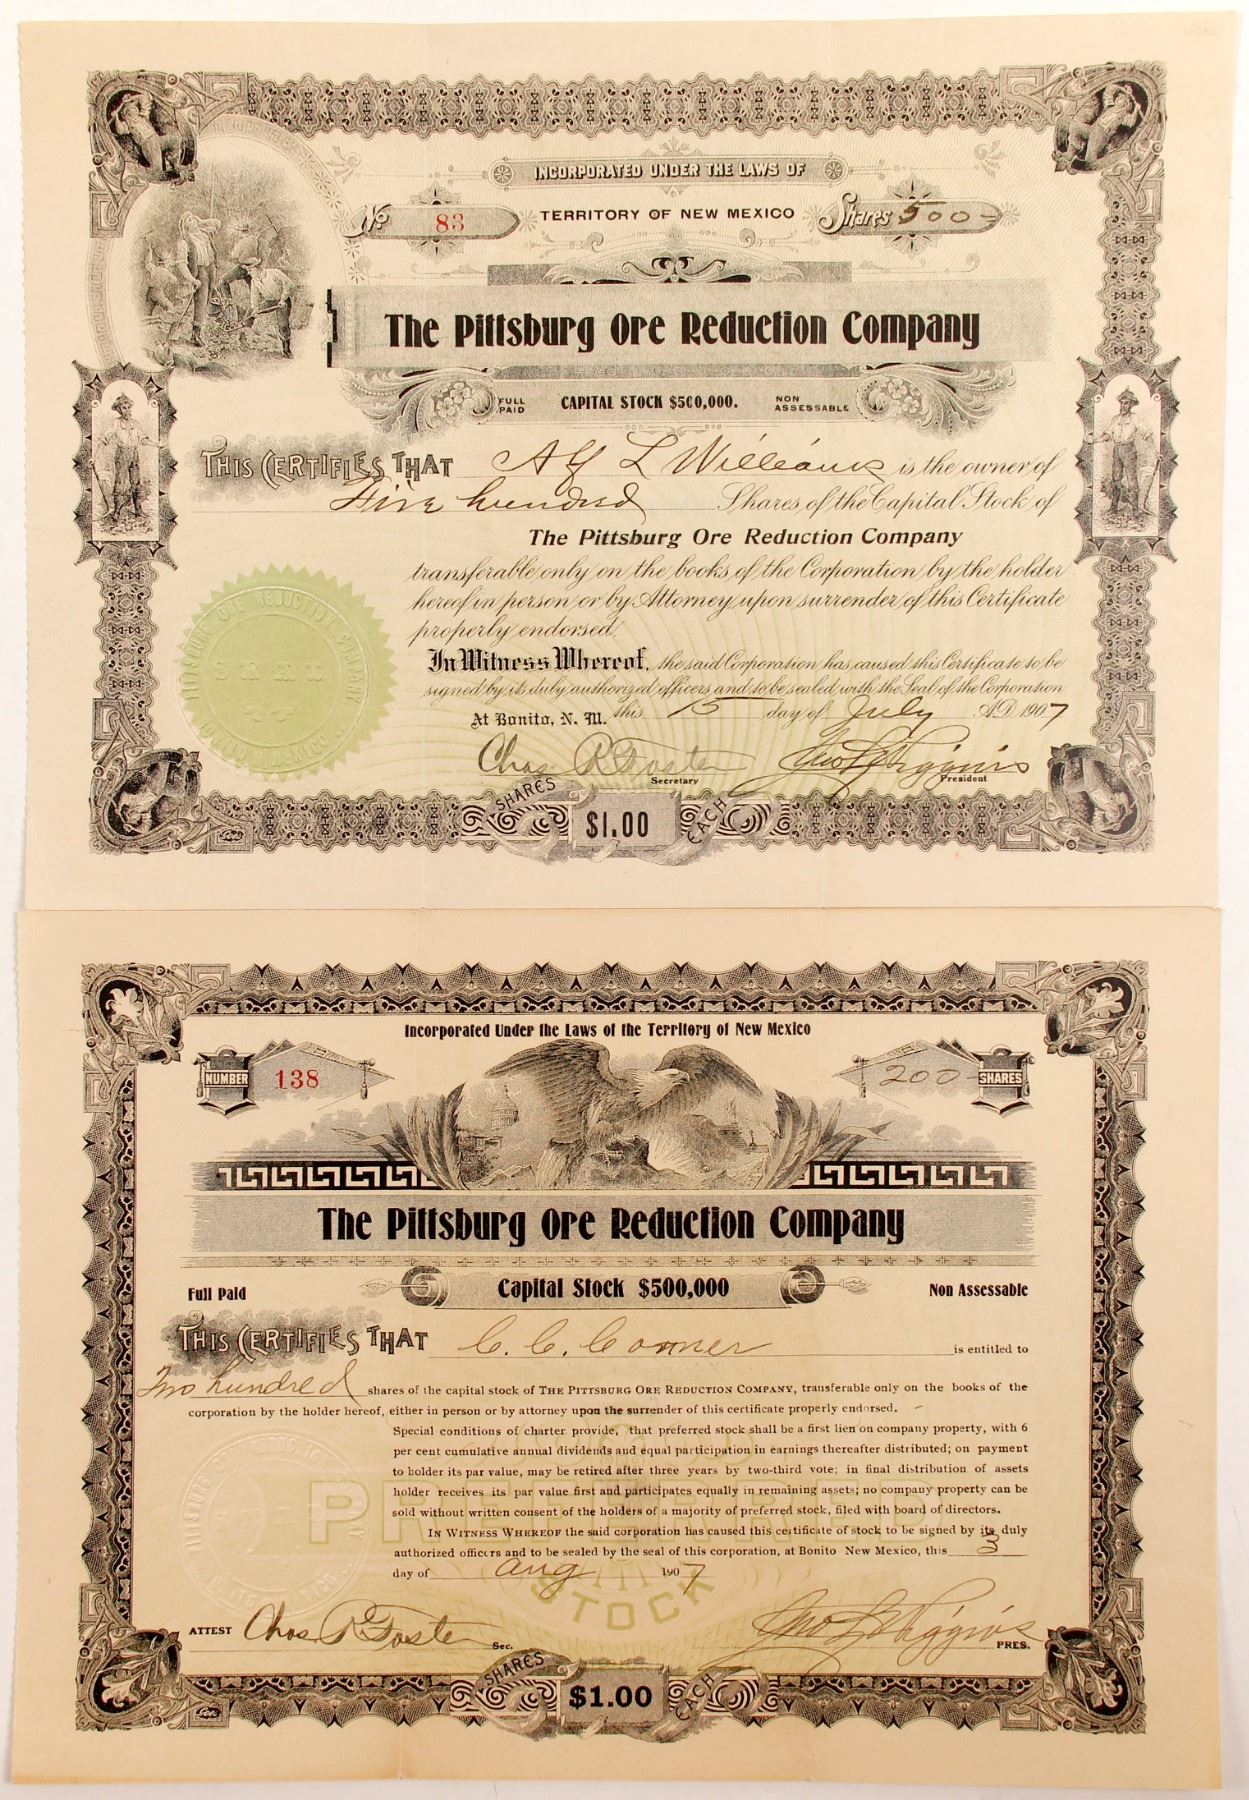 INCORPORATED UNDER THE LAWS OF
No 83 TERRITORY OF NEW MEXICO Shares 500-
The Pittsburg Ore Reduction Company
FULL PAID CAPITAL STOCK $500,000. NON ASSESSABLE
THIS CERTIFIES THAT Alf L Williams is the owner of
Five hundred Shares of the Capital Stock of
The Pittsburg Ore Reduction Company
transferable only on the books of the Corporation by the holder
hereof in person or by Attorney upon surrender of this Certificate
properly endorsed.
In Witness Whereof, the said Corporation has caused this Certificate to be
signed by its duly authorized officers and to be sealed with the Seal of the Corporation
At Bonito, N. M. this 15 day of July A.D. 1907
Chas R Foster Secretary Jno L Wiggins President
SHARES $1.00 EACH
PITTSBURG ORE REDUCTION COMPANY
SEAL
Incorporated Under the Laws of the Territory of New Mexico
NUMBER 138 200- SHARES
The Pittsburg Ore Reduction Company
Full Paid Capital Stock $500,000 Non Assessable
THIS CERTIFIES THAT C. C. Conner is entitled to
Two hundred shares of the capital stock of THE PITTSBURG ORE REDUCTION COMPANY, transferable only on the books of the
corporation by the holder hereof, either in person or by attorney upon the surrender of this certificate properly endorsed.
Special conditions of charter provide, that preferred stock shall be a first lien on company property, with 6
per cent cumulative annual dividends and equal participation in earnings thereafter distributed; on payment
to holder its par value, may be retired after three years by two-third vote; in final distribution of assets
holder receives its par value first and participates equally in remaining assets; no company property can be
sold without written consent of the holders of a majority of preferred stock, filed with board of directors.
IN WITNESS WHEREOF the said corporation has caused this certificate of stock to be signed by its duly
authorized officers and to be sealed by the seal of this corporation, at Bonito New Mexico, this 3
day of Aug 1907
PREFERRED
STOCK
ATTEST Chas R Foster Sec. Jno L Wiggins PRES.
SHARES $1.00 EACH